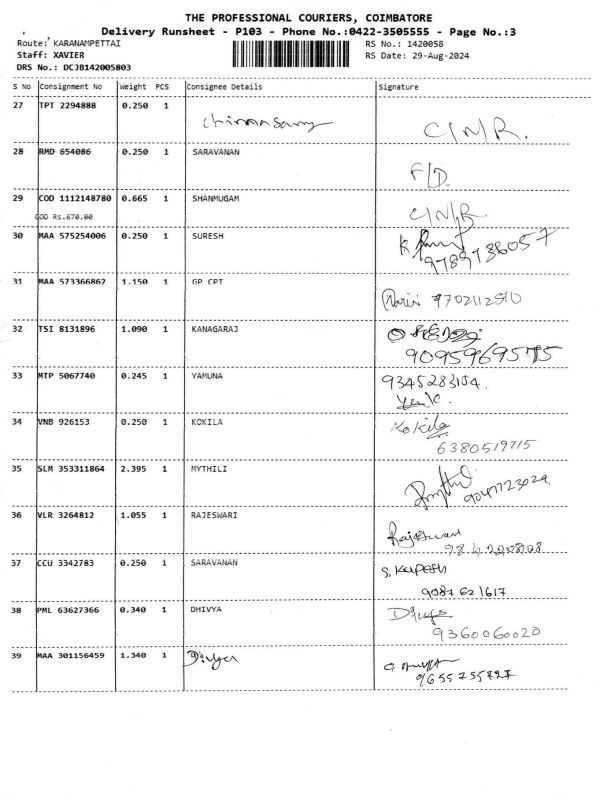 THE PROFESSIONAL COURIERS, COIMBATORE
Delivery Runsheet - P103 - Phone No.:0422-3505555 - Page No.:3
Route: KARANAMPETTAI
RS No.: 1420058
Staff: XAVIER
RS Date: 29-Aug-2024
DRS No.: DCJB142005803
S No Consignment No Weight PCS Consignee Details Signature
27 TPT 2294888 0.250 1
C/N/R.
28 RMD 654086 0.250 1 SARAVANAN
F/D.
29 COD 1112148780 0.665 1 SHANMUGAM
COD Rs.670.00
C/N/R
30 MAA 575254006 0.250 1 SURESH
9789736057
31 MAA 573366862 1.150 1 GP CPT
9702112510
32 TSI 8131896 1.090 1 KANAGARAJ
9095969575
33 MTP 5067740 0.245 1 YAMUNA
9345283104.
34 VNB 926153 0.250 1 KOKILA
Kokila
6380519715
35 SLM 353311864 2.395 1 MYTHILI
9047723029
36 VLR 3264812 1.055 1 RAJESWARI
Rajeswari
37 CCU 3342783 0.250 1 SARAVANAN
9087621617
38 PML 63627366 0.340 1 DHIVYA
9360060020
39 MAA 301156459 1.340 1
9655755727